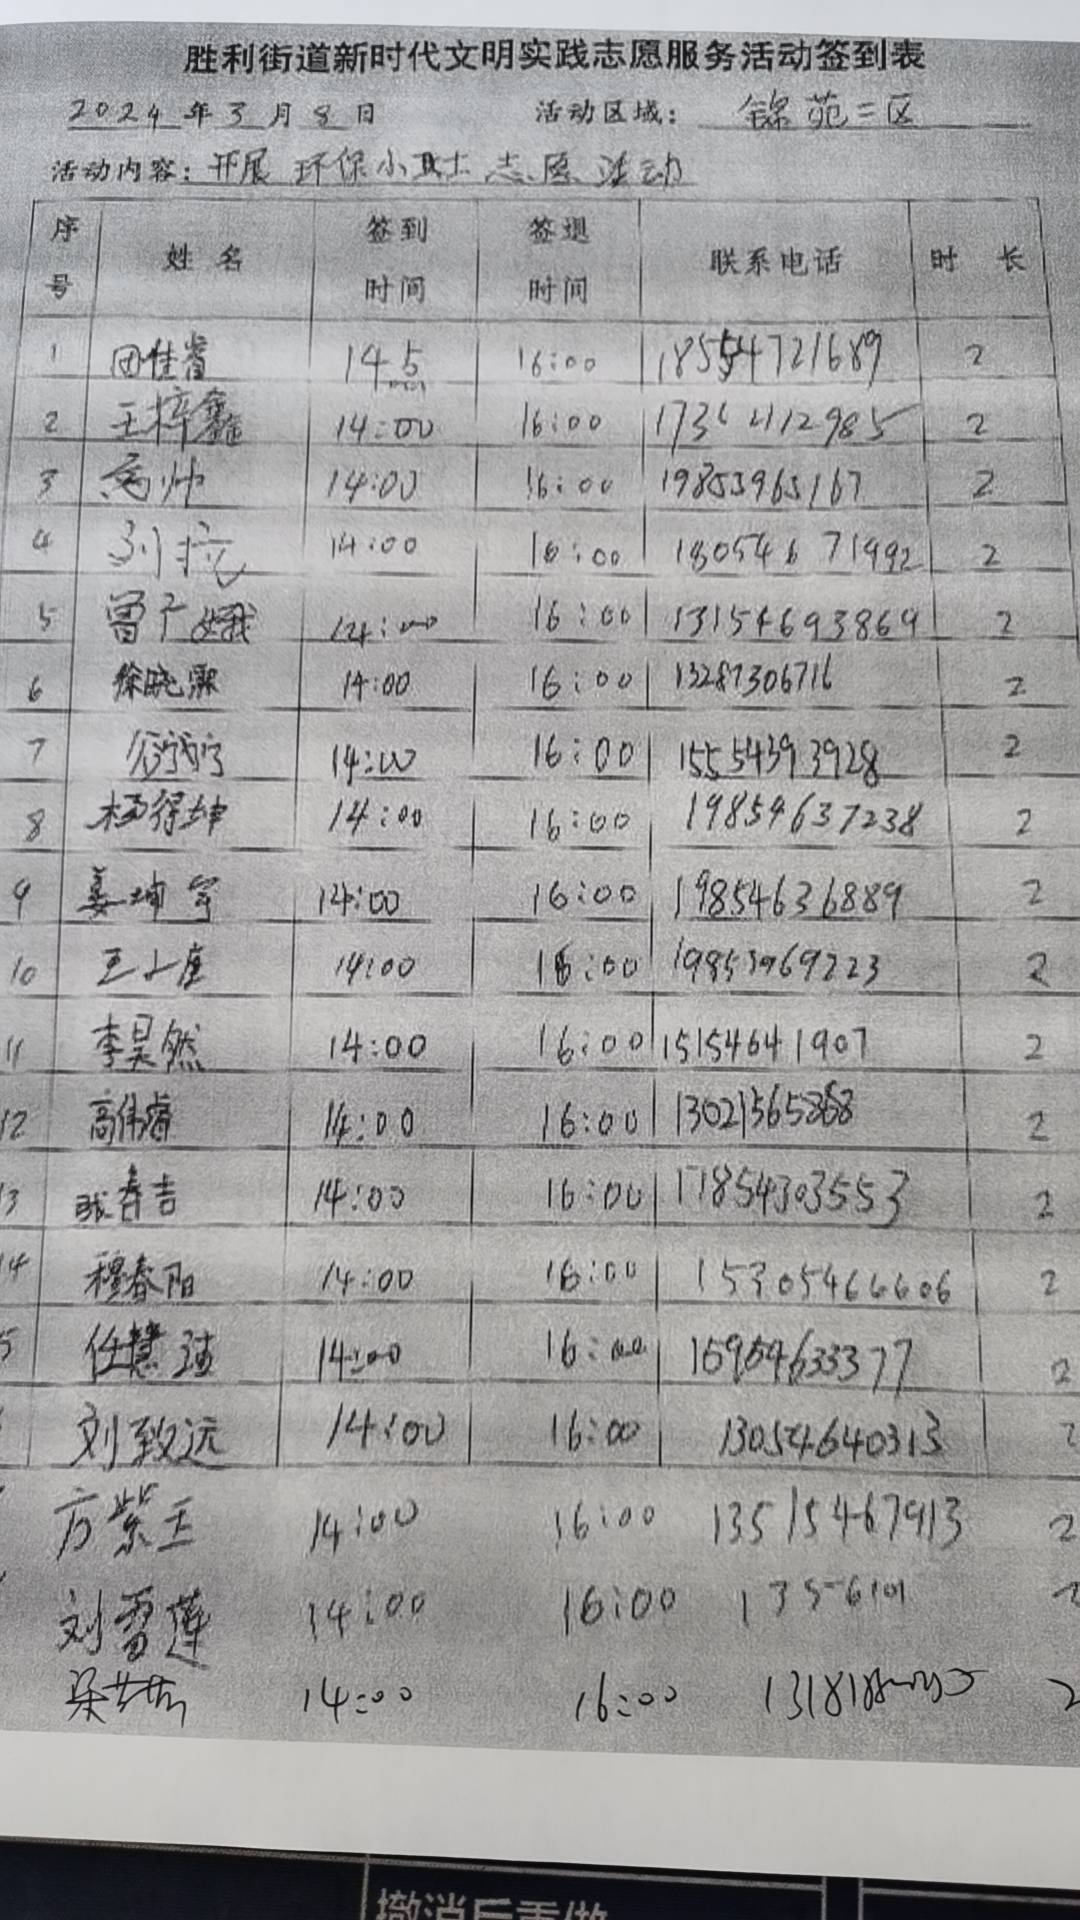 胜利街道新时代文明实践志愿服务活动签到表
2024年3月8日 活动区域: 锦苑二区
活动内容: 开展环保小卫士志愿活动
序号 姓名 签到时间 签退时间 联系电话 时长
1 田佳睿 16:00 18554721689 2
2 王梓鑫 14:00 16:00 2
3 14:00 16:00 19853965167 2
4 刘 14:00 16:00 18054671992 2
5 曾子娥 14:00 16:00 13154693869 2
6 徐晓霖 14:00 16:00 13287306716 2
7 14:00 16:00 15554393928 2
8 杨得坤 14:00 16:00 19854637238 2
9 姜坤宇 14:00 16:00 19854636889 2
10 王 14:00 16:00 19853969223 2
11 李昊然 14:00 16:00 15154641907 2
12 高伟睿 14:00 16:00 2
13 张春吉 14:00 16:00 17854303553 2
14 穆春阳 14:00 16:00 15305466606 2
5 任慧 14:00 16:00 15954633377 2
刘致远 14:00 16:00 13054640313 2
方紫王 14:00 16:00 13515467913 2
刘雪莲 14:00 16:00 2
梁 14:00 16:00 2
撤消后重做